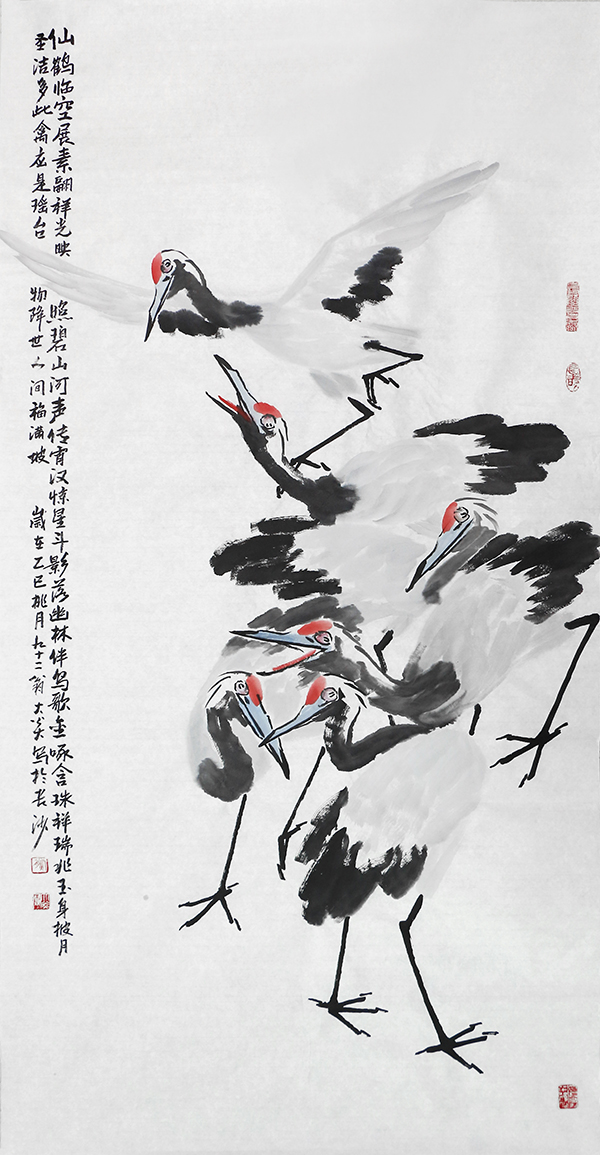 仙鹤临空展素翮祥光映照碧山河声传宵汉惊星斗影落幽林伴鸟歌金啄含珠祥瑞兆玉身披月
圣洁多此禽应是瑶台物降世人间福满坡 岁在乙巳桃月九十二翁大炎写於长沙